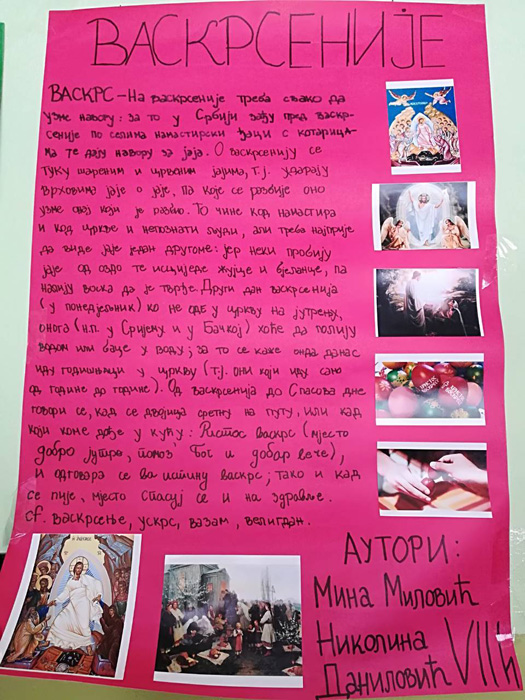 ВАСКРСЕНИЈЕ
ВАСКРС – На васкрсеније треба свако да
узме навору: за то у Србији зађу пред васкр-
сеније по селима намастирски ђаци с котарица-
ма те дају навору за јаја. О васкрсенију се
туку шареним и црвеним јајима, т.ј. ударају
врховима јаје о јаје, па које се разбије оно
узме онај који је разбио. То чине код намастира
и код цркве и непознати људи, али треба најприје
да виде јаје један другоме: јер неки пробију
јаје од оздо те исциједе жујце и бјеланце, па
налију воска да је тврђе. Други дан васкрсенија
(у понедјељник) ко не оде у цркву на јутрење,
онога (н.п. у Сријему и у Бачкој) хоће да полију
водом или баце у воду; за то се каже онда данас
иду годишњаци у цркву (т.ј. они који иду само
од године до године). Од васкрсенија до Спасова дне
говори се, кад се двојица сретну на путу, или кад
који коме дође у кућу: Ристос васкрс (мјесто
добро јутро, помоз' Бог и добар вече),
и одговара се ва истину васкрс; тако и кад
се пије, мјесто спасуј се и на здравље.
cf. васкрсење, ускрс, вазам, велигдан.
АУТОРИ:
Мина Миловић
Николина
Даниловић VIII